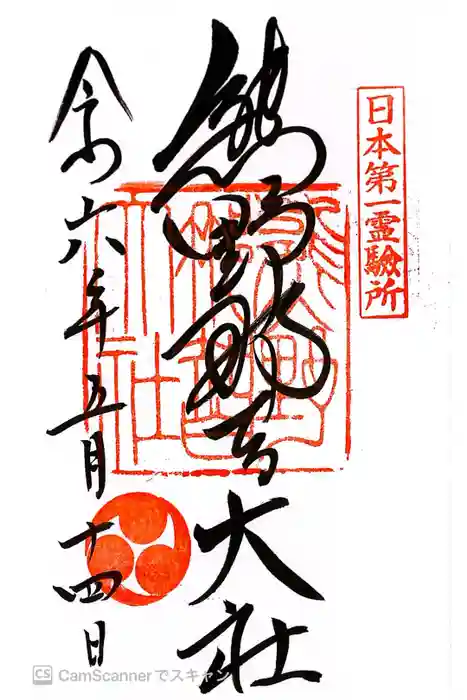 日本第一霊驗所
熊野那智大社
令和六年五月十四日
CS CamScannerでスキャン